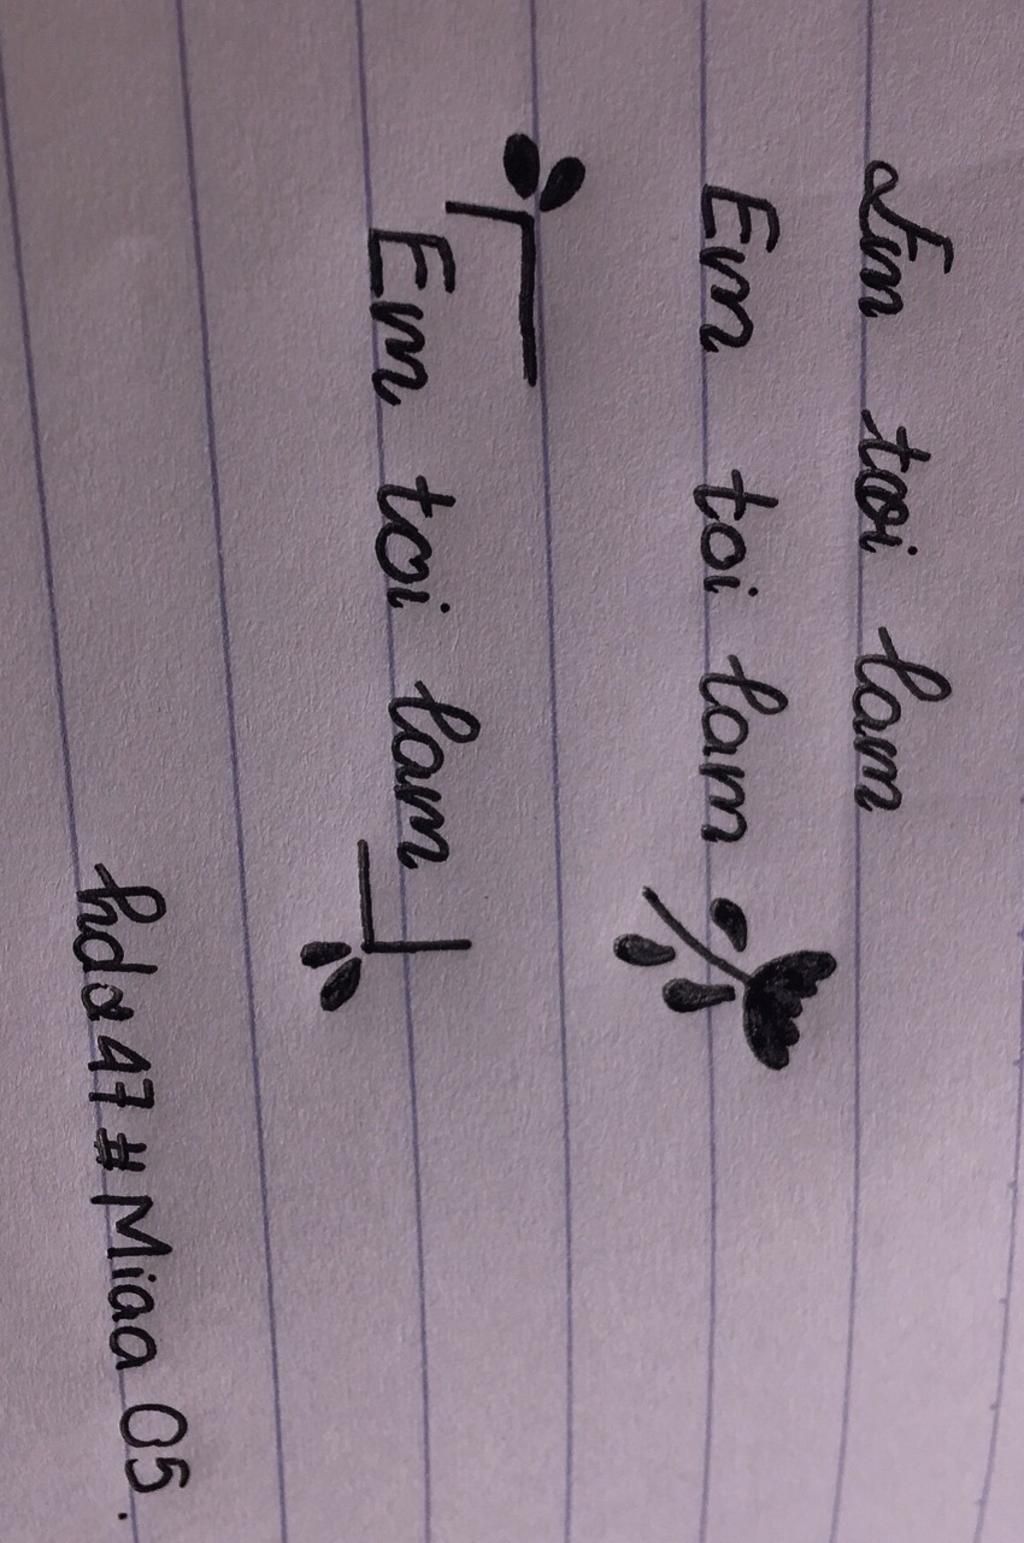 Em toi lam
Em toi lam
Em toi lam
hda47#Miaa 05.